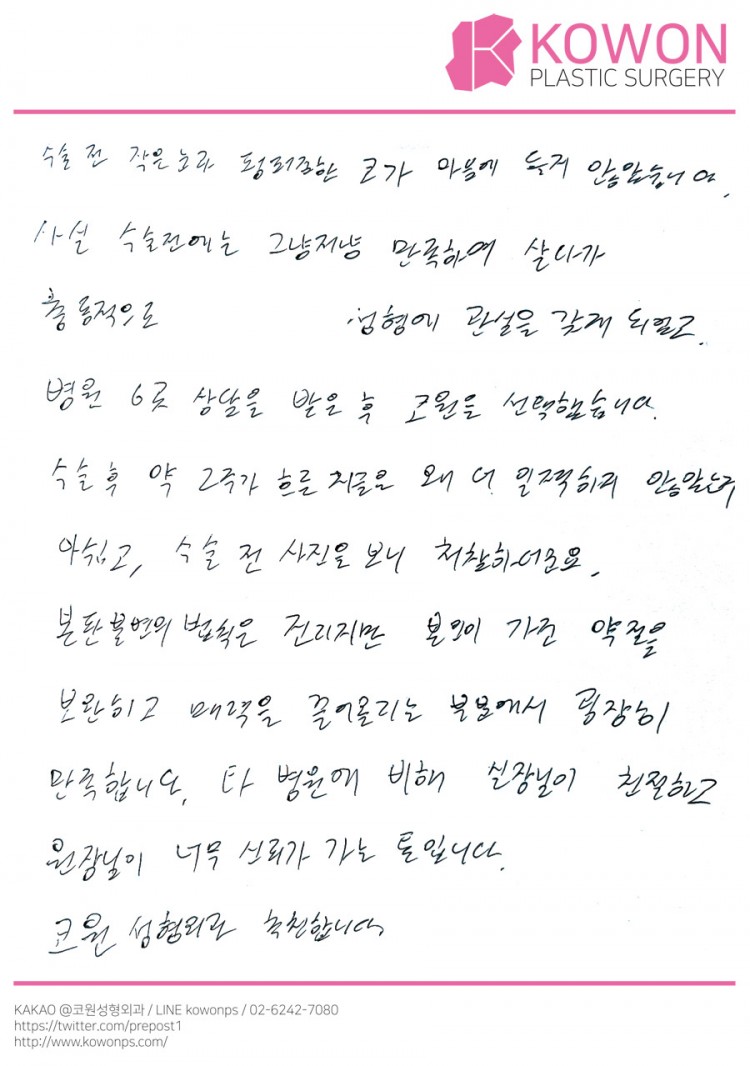 KOWON
PLASTIC SURGERY
수술 전 작은 눈과 펑퍼짐한 코가 마음에 들지 않았습니다.
사실 수술전에는 그냥저냥 만족하며 살다가
충동적으로 성형에 관심을 갖게 되었고.
병원 6곳 상담을 받은 후 코원을 선택했습니다.
수술 후 약 2주가 흐른 지금은 왜 더 일찍하지 않았는지
아쉽고, 수술 전 사진을 보니 처참하더군요.
본판불변의 법칙은 진리지만 본인이 가진 약점을
보완하고 매력을 끌어올리는 부분에서 굉장히
만족합니다. 타 병원에 비해 실장님이 친절하고
원장님이 너무 신뢰가 가는 톤입니다.
코원 성형외과 추천합니다
KAKAO @코원성형외과 / LINE kowonps / 02-6242-7080
https://twitter.com/prepost1
http://www.kowonps.com/